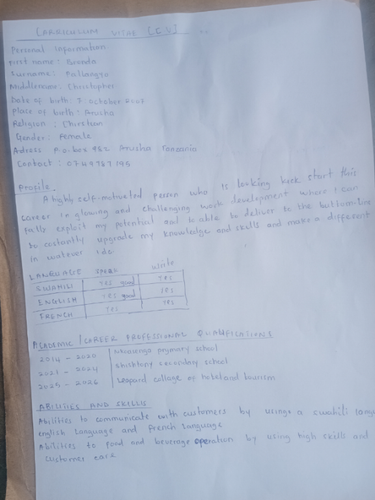 CARRICULUM VITAE (CV)
Personal information
First name:
Surname:
Middlename: Christopher
Date of birth: 7 October
Place of birth: Arusha
Religion: Christian
Gender: Female
Adress: P.o.box 962 Arusha Tanzania
Contact:
Profile.
A highly self-motivated person who is looking start this
career in glowing and challenging development where I can
fully exploit my potential and to able to deliver to the bottomline
to costantly upgrade my knowledge and skills and make a different
in watever I do
LANGUAGE write
SWAHILI YES good YES
ENGLISH YES good YES
FRENCH YES YES
ACADEMIC / CAREER PROFESSIONAL QUALIFICATIONS
2014 - 2020 school
2021 - 2024 secondary school
2025 - 2026 Leopard collage of hotel and tourism
ABILITIES AND SKILLS
Abilities to communicate with customers by using a swahili
english language and french language
Abilities to food and beverage operation by using high skills and
customer care